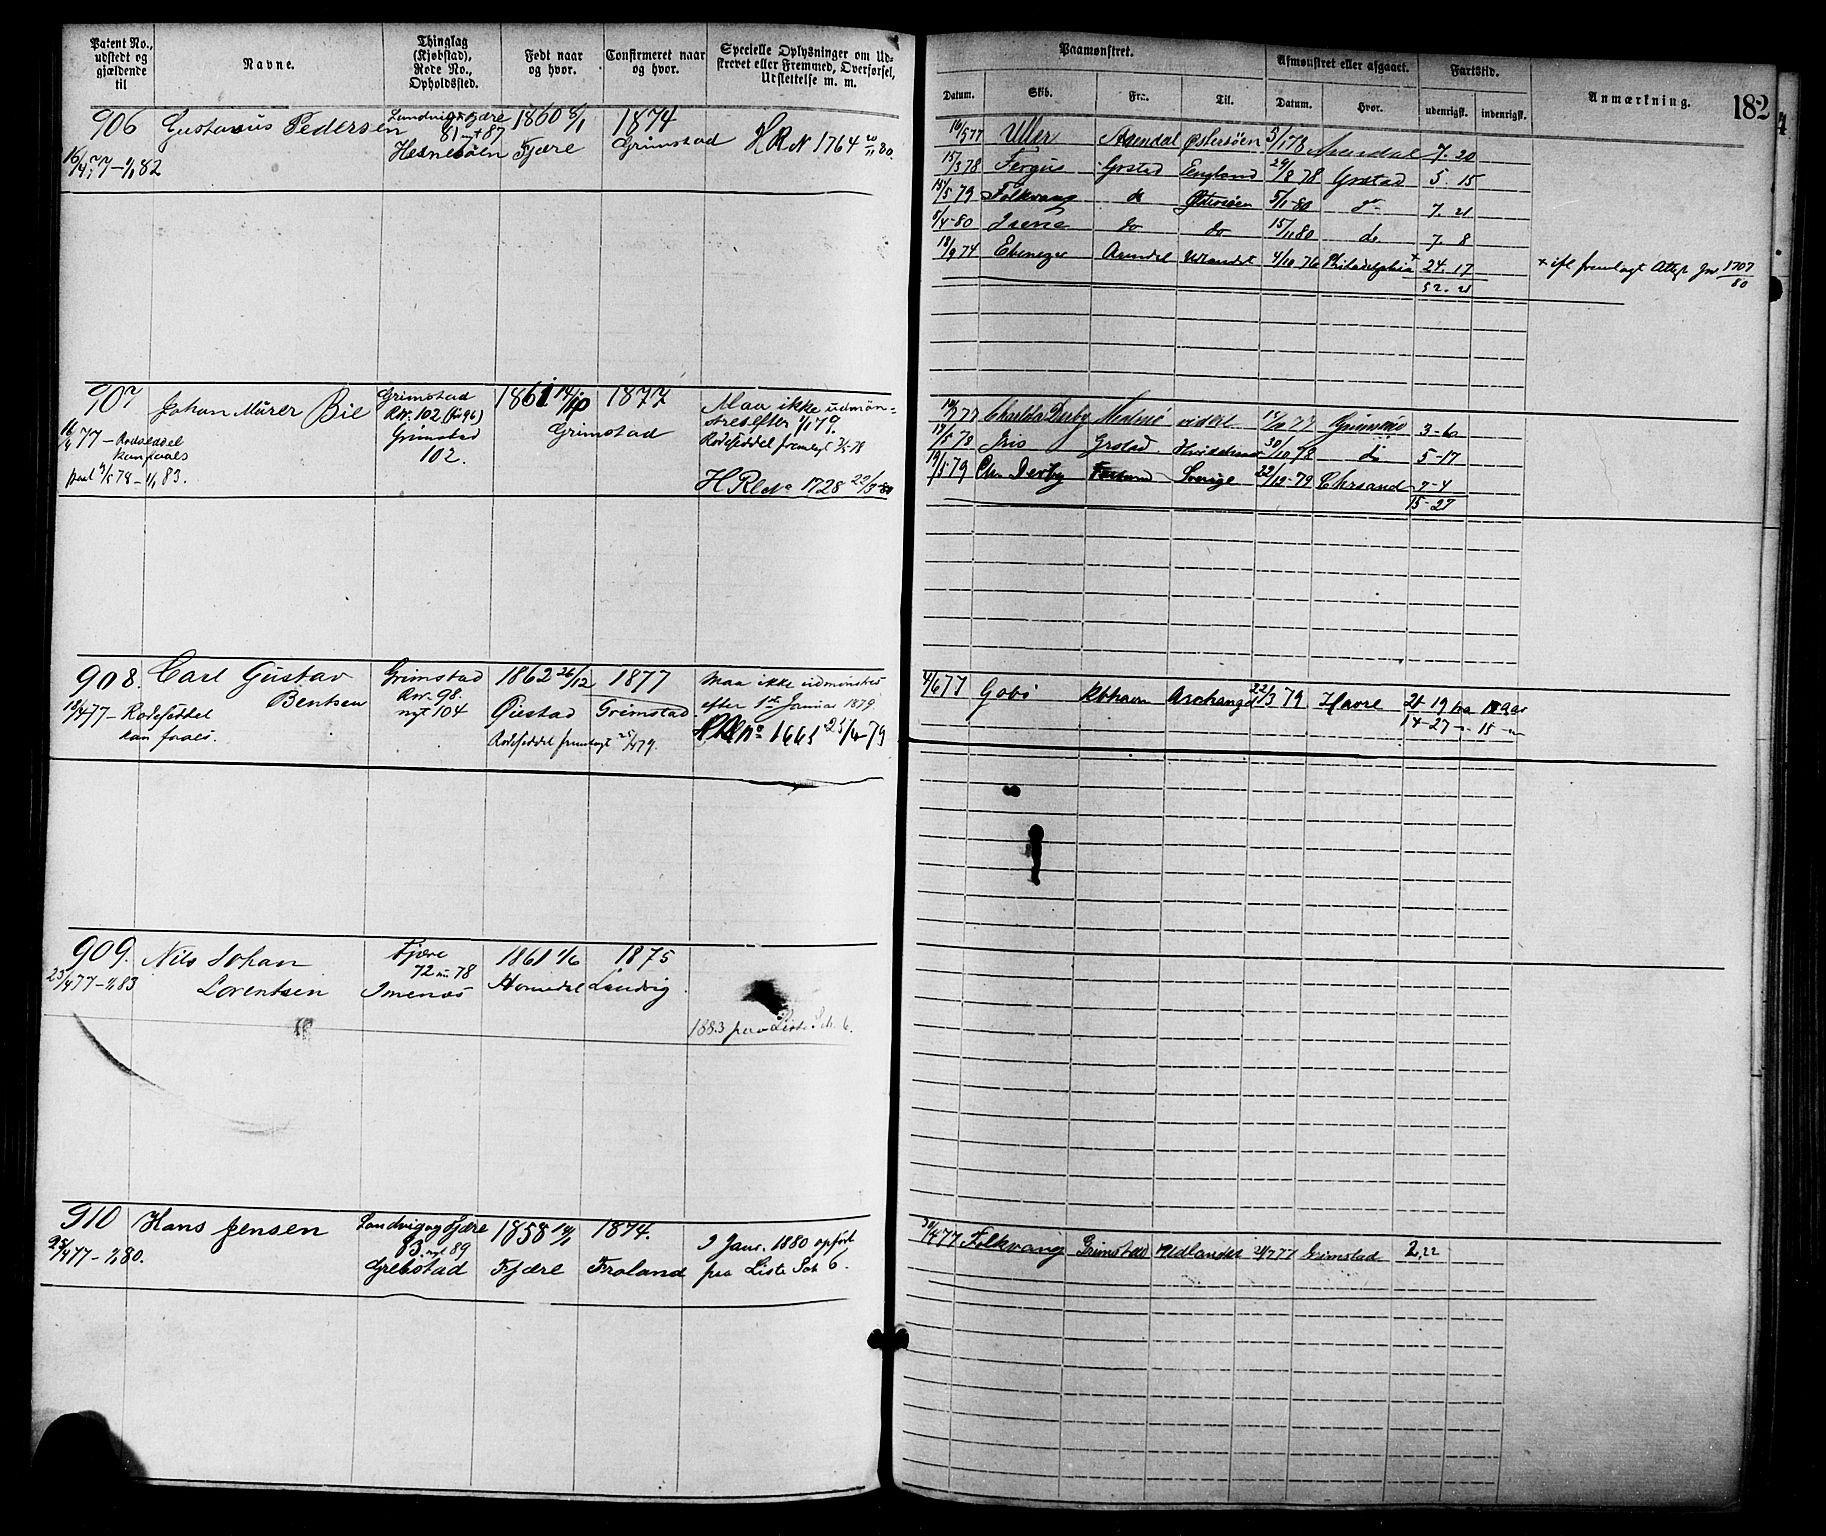 Patent No., udstedt og gjældende til
Navne.
Thinglag (Kjøbstad), Rode No., Opholdssted.
Født naar og hvor.
Confirmeret naar og hvor.
Specielle Oplysninger om Udskrevet eller Fremmed, Overførsel, Udslettelse m. m.
Paamønstret.
Afmønstret eller afgaaet.
Fartstid.
Anmærkning.
182
Datum.
Skib.
Fra:
Til.
Datum.
Hvor.
udenrigsk.
indenrigsk.
906
Gustavus Pedersen
Landvig & Fjære
81 nyt 87
Hesnesøen
1860 8/1
Fjære
1874
Grimstad
H R N 1764 20/11 80.
16/4 77 - 1/1 82
16/5 77 Uller Arendal Østersøen 5/1 78 Arendal 7. 20
15/3 78 Fergus Grstad England 29/8 78 Grstad 5. 15
15/5 79 Folkvang do Østersøen 5/1 80 do 7. 21
8/4 80 Irene do do 15/11 80 do 7. 8
18/9 74 Ebenezer Arendal Udlandet 4/10 76 Philadelphia + 24. 17
+ ifl fremlagt Attest Jnr 1707/80
52. 21
907
Johan Mürer Bie
Grimstad
Rnr. 102 (før 96)
Grimstad
102.
1861 14/10
1877
Grimstad
Maa ikke udmøn-
stres efter 1/1 79.
Rodeseddel fremlagt 3/5 78
H R No 1728 22/3 80
16/4 77 - Rodeseddel
kan faaes
paal 3/5 78 - 1/1 83.
Charles Derby Malmø 17/10 77 3-6
Iris Grstad. 30/10 78 do 5-17
19/5 79 Chs Derby Sverige 22/12-79 Chrsand 7-4
15-27
908.
Carl Gustav
Bentsen
Grimstad
Rnr. 98.
nyt 104
1862 26/12
Øiestad
1877
Grimstad
Rodeseddel fremlagt 25/4 79.
Maa ikke udmønstres
efter 1ste Januar 1879.
HRNo. 1665 25/4-79
18/4 77 - Rodeseddel
kan faaes.
4/6 77 Gobi Kbhavn Archangel 22/3 79 Havre 21 19
14-27 - 15
909.
Nils Johan
Lorentsen
Fjære
72 nu 78
Imenæs
1861 4/6
Homedal
1875
Landvig
23/4 77 - 1/1 83
1883 paa Liste Sch. 6.
910
Hans Jensen
Landvig og Fjære
83. nyt 89
Grebstad
1858
Fjære
1874.
Froland
2 Janr. 1880 opført
paa Liste Sch 6.
25/4 77 - 1/1 80.
30/4 77 Folkvang Grimstad Udlandet 21/7 77 Grimstad 2,22